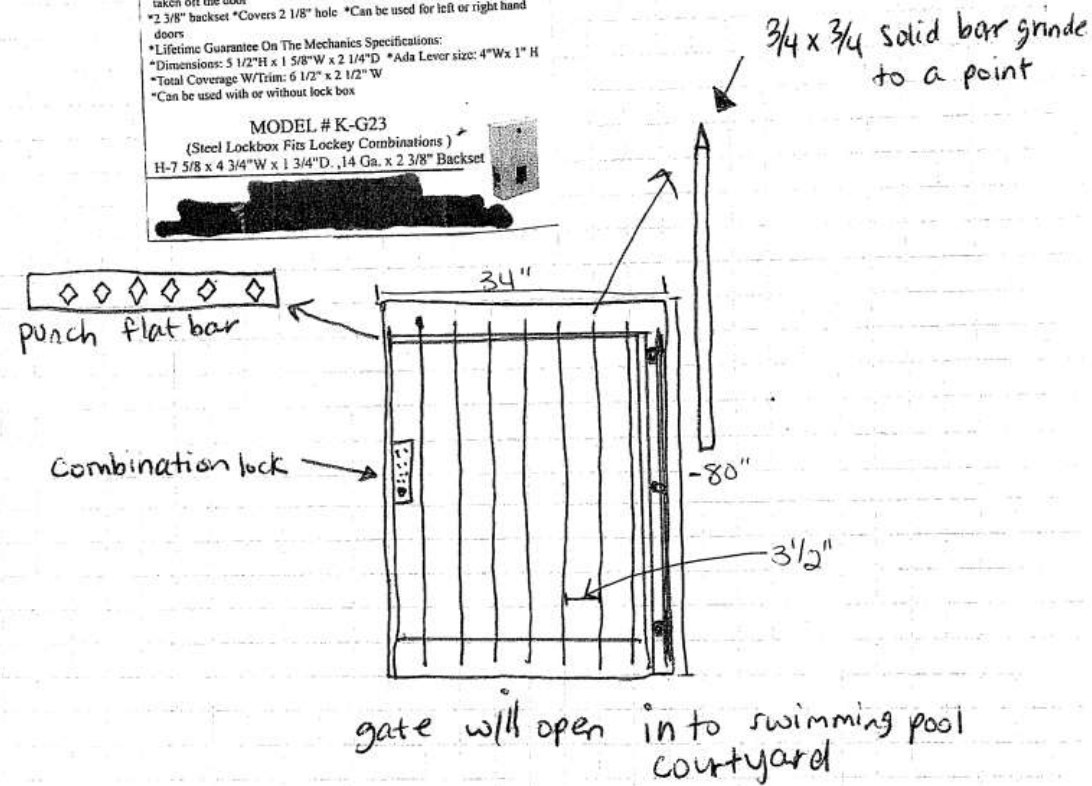 taken off the door
*2 3/8" backset *Covers 2 1/8" hole *Can be used for left or right hand
doors
*Lifetime Guarantee On The Mechanics Specifications:
*Dimensions: 5 1/2"H x 1 5/8"W x 2 1/4"D *Ada Lever size: 4"Wx 1" H
*Total Coverage W/Trim: 6 1/2" x 2 1/2" W
*Can be used with or without lock box
MODEL # K-G23
(Steel Lockbox Fits Lockey Combinations )
H-7 5/8 x 4 3/4"W x 1 3/4"D. ,14 Ga. x 2 3/8" Backset
3/4 x 3/4 solid bar grinde
to a point
34"
punch flat bar
combination lock
-80"
3 1/2"
gate will open in to swimming pool
courtyard